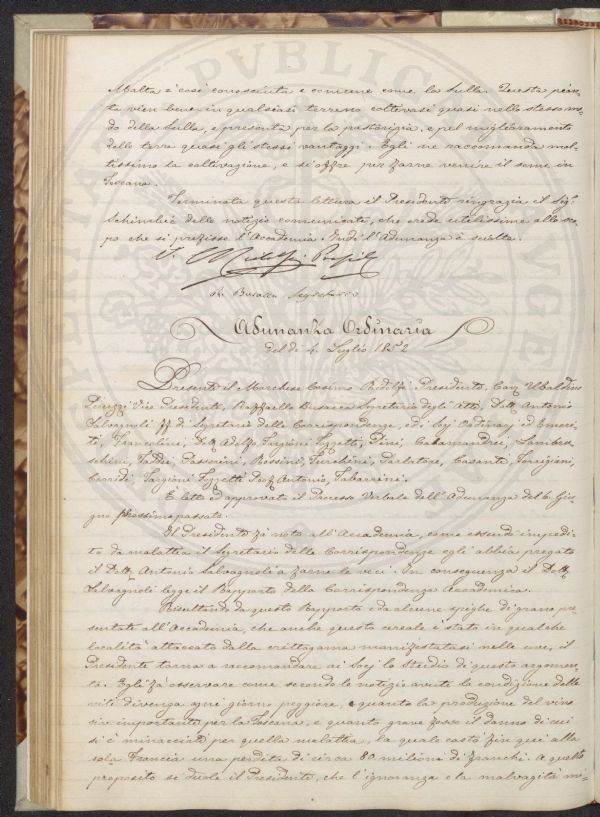 Malta è così conosciuta e comune come la Sulla. Questa pian-
ta vien bene in qualsiasi terreno coltivasi quasi nello stesso mo-
do della Sulla, e presenta per la pastorizia, e pel miglioramento
delle terre quasi gli stessi vantaggi. Egli ne raccomanda mol-
tissimo la coltivazione, e si offre per farne venire il seme in
Toscana.
Terminata questa lettura il Presidente ringrazia il Sigr
Schinbié delle notizie comunicate, che crede utilissime allo sco-
po che si prefisse l'Accademia. Indi l'Adunanza è sciolta.
V. C. Ridolfi
Busacca Segretario
Adunanza Ordinaria
del dì 4. Luglio 1852
Presenti il Marchese Cosimo Ridolfi Presidente, Cav. Ubaldino
Peruzzi Vice Presidente, Raffaello Busacca Segretario degli Atti, Dott. Antonio
Salvagnoli ff. di Segretario delle Corrispondenze, ed i Socj Ordinarj ed Emeri-
ti, Francolini, Dott. Adolfo Targioni Tozzetti, Pini, Calamandrei, Lambru-
schini, Taddei, Passerini, Rossini, Turchini, Parlatore, Casanti,
Corridi, Targioni Tozzetti Prof. Antonio, Tabarrini.
È letto ed approvato il Processo Verbale dell'Adunanza del 6. Giu-
gno prossimo passato.
Il Presidente fà noto all'Accademia, come essendo impedi-
to da malattia il Segretario delle Corrispondenze egli abbia pregato
il Dott. Antonio Salvagnoli a farne le veci. In conseguenza il Dott.
Salvagnoli legge il Rapporto della Corrispondenza Accademica.
Risultando da questo Rapporto e da alcune spighe di grano pre-
sentate all'Accademia, che anche questo cereale è stato in qualche
località attaccato dalla crittogama manifestatasi nelle uve, il
Presidente torna a raccomandare ai Socj lo studio di questo argomen-
to. Egli fà osservare come secondo le notizie avute la condizione delle
viti divenga ogni giorno peggiore, e quanto la produzione del vino
sia importante per la Toscana, e quanto grave fosse il danno di cui
si è minacciati per quella malattia, la quale costò fin qui alla
sola Francia una perdita di circa 80 milioni di franchi. A questo
proposito si duole il Presidente, che l'ignoranza e la malvagità